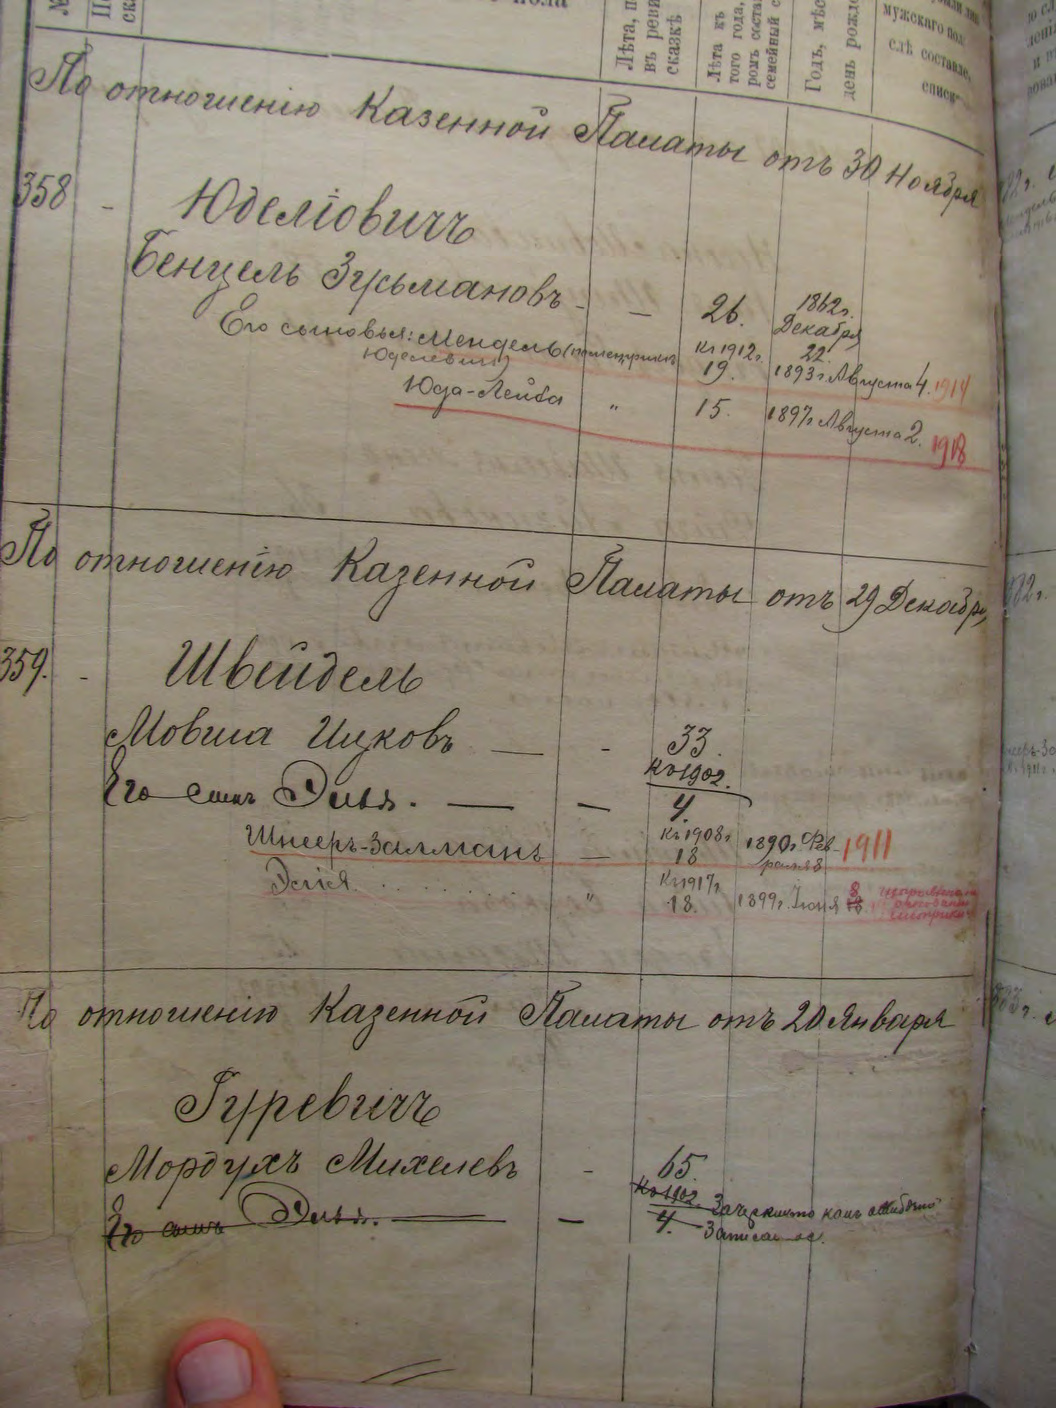 №
пола
Лѣта, п
въ реви
сказкѣ
Лѣта къ
того года,
ромъ состав
семейный с
Годъ, мѣс
день рожде
мужскаго пол
слѣ составле
списк
По отношенію Казенной Палаты отъ 30 Ноября
358 - Юделіовичъ
Бенцель Зусьмановъ - — 26. 1862г. Декабря 22
Его сыновья: Мендель (
Юделевич) къ 1912г. 19. 1893г Августа 4. 1914
Юда-Лейба " 15. 1897г Августа 2. 1918
По отношенію Казенной Палаты отъ 29 Декабря
359. - Швейдель
Мовша Ицковъ — - 33.
Его сынъ Элья. — — къ 1902. 4.
Шнееръ-Залманъ — къ 1908г 18 1890г. Фев
раля 8 1911
Элія . . . . . . . . " къ 1917г. 18. 1899г. Іюня 8
По отношенію Казенной Палаты отъ 20 Января
Гуревичъ
Мордухъ Михелевъ - 65.
Его сынъ Элья. — — къ 1902. 4. Зачеркнуто какъ ошибочно
записанное.